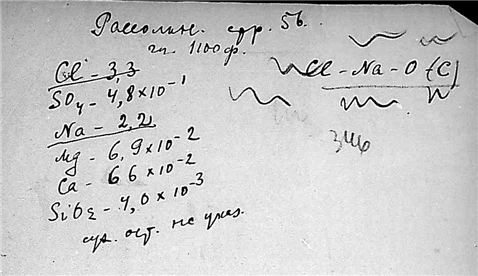 Рассолин. стр. 56.
гл. 1100 ф.
Cl - 3,3
SO4 - 4,8×10-1
Na - 2,2
Mg - 6,9×10-2
Ca - 6 6×10-2
SiO2 - 4,0×10-3
сух. ост. не указ.
Cl - Na - O (C)
346